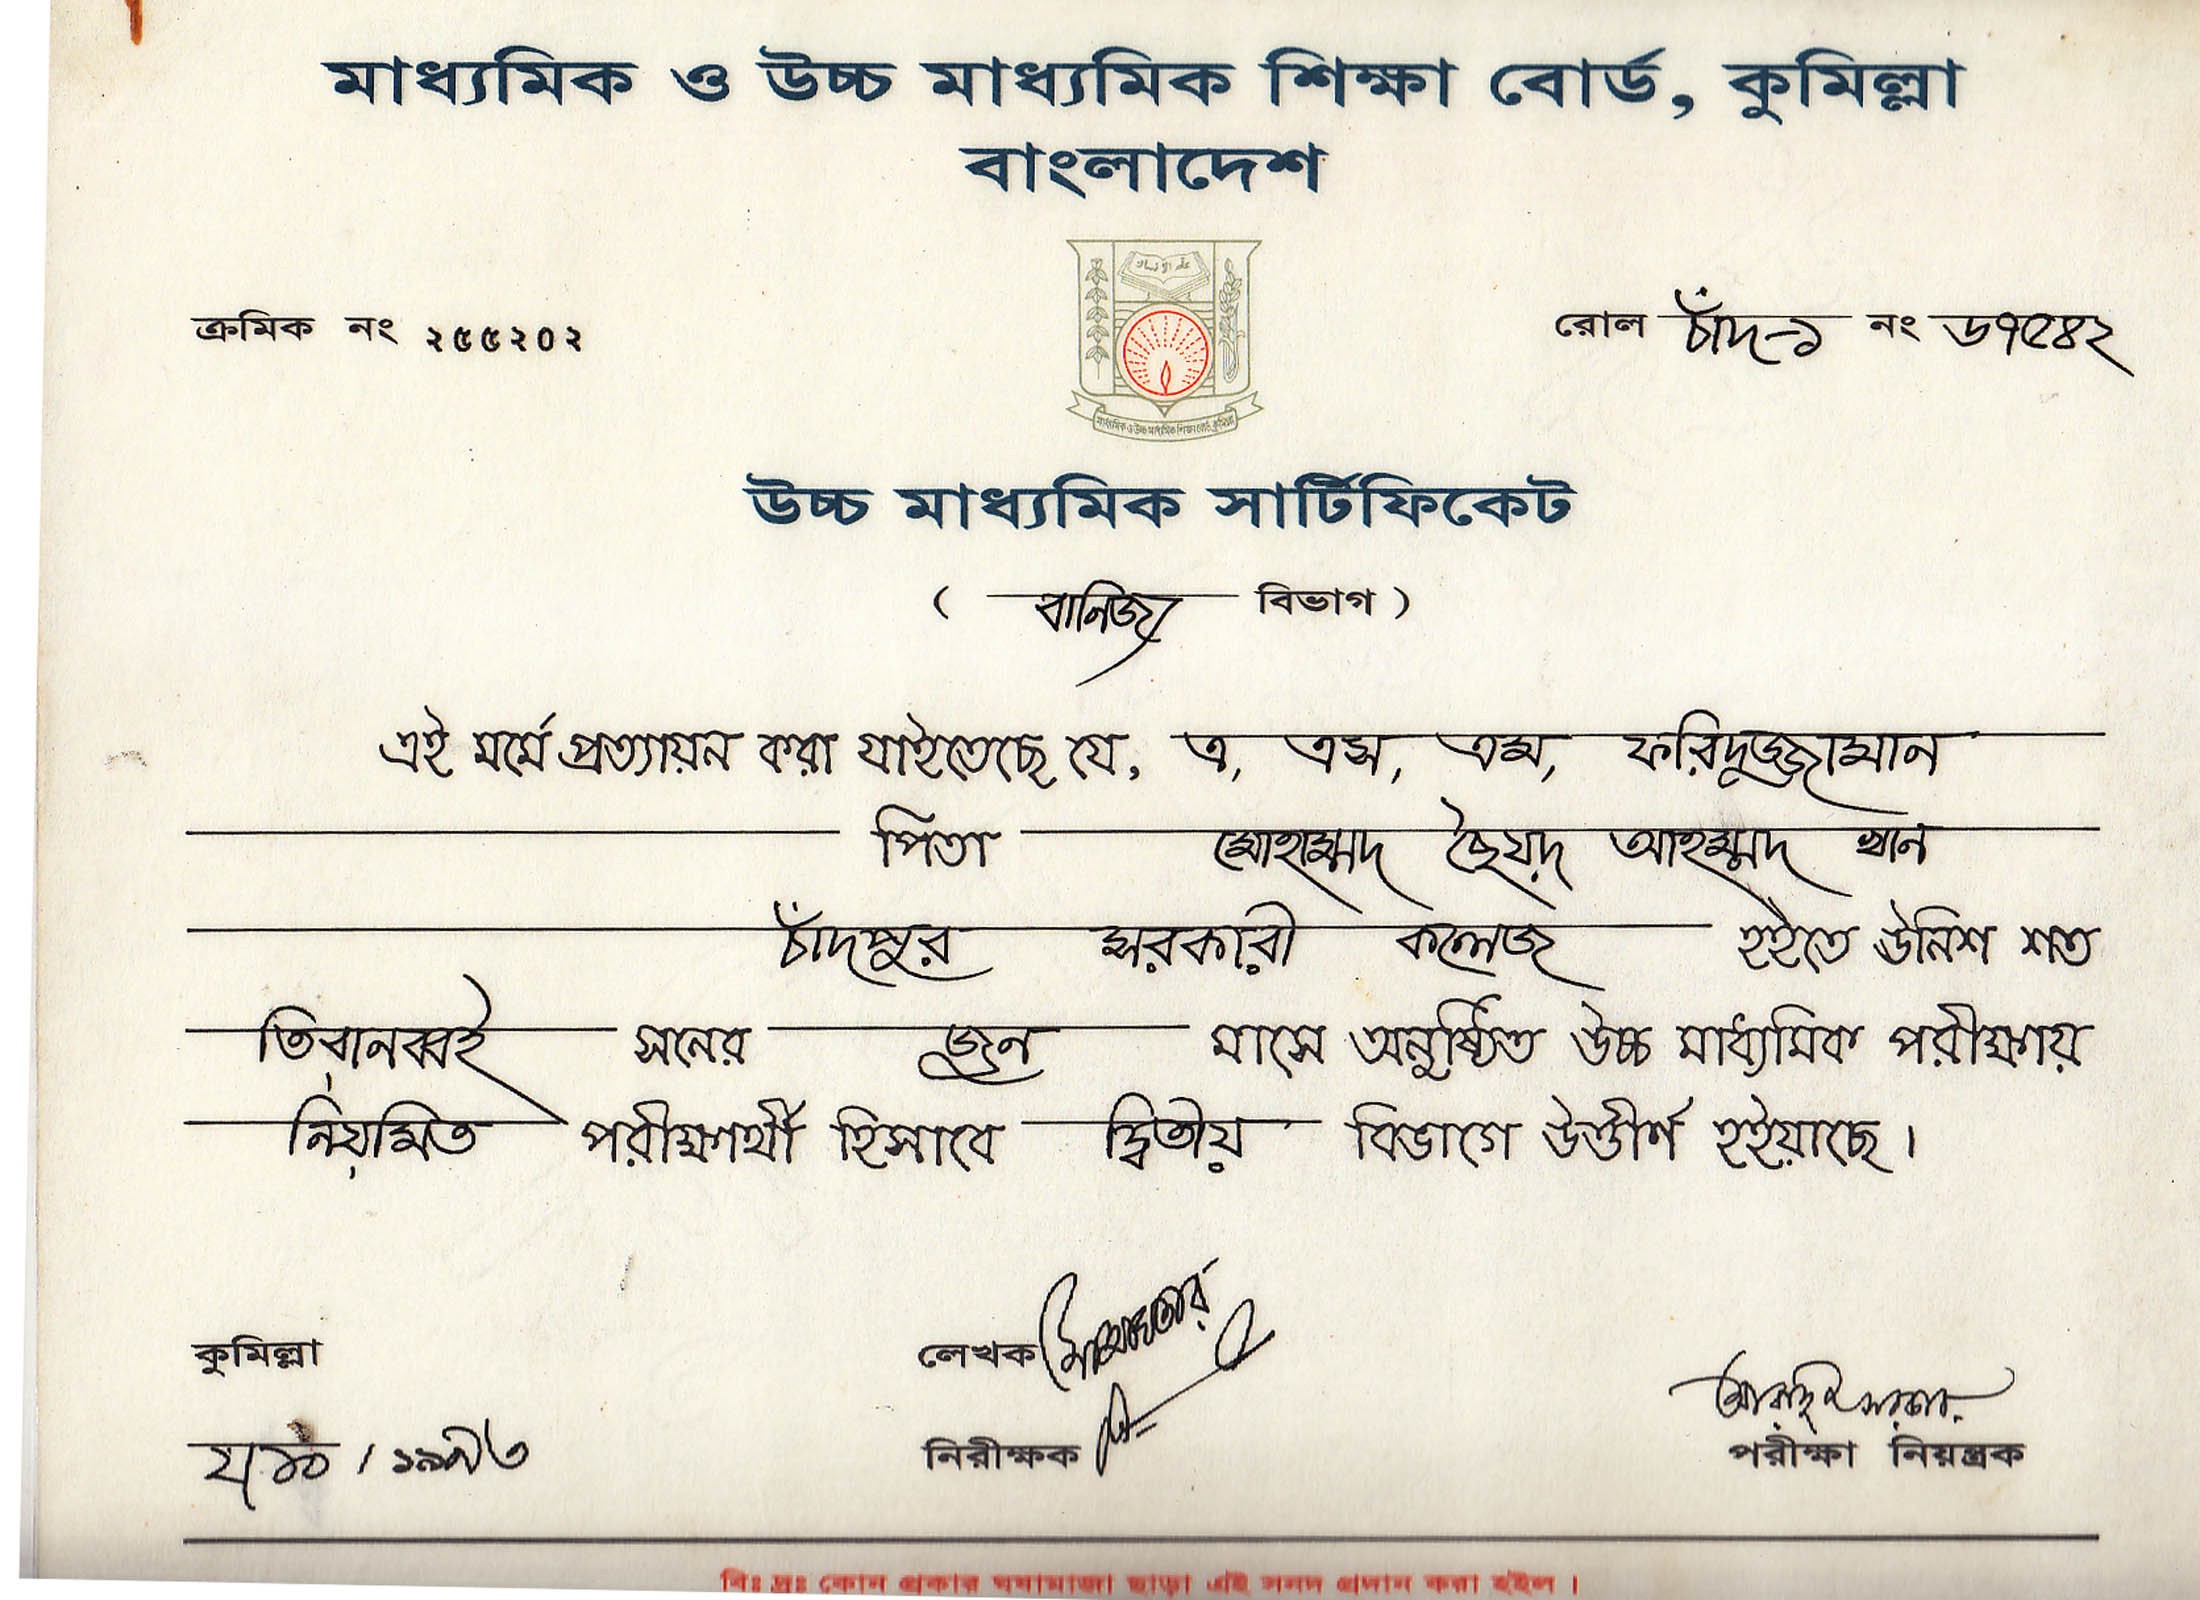 মাধ্যমিক ও উচ্চ মাধ্যমিক শিক্ষা বোর্ড, কুমিল্লা
বাংলাদেশ
ক্রমিক নং ২৫৫২০২
রোল চাঁদ-১ নং ৬৭৫৪২
মাধ্যমিক ও উচ্চ মাধ্যমিক শিক্ষা বোর্ড, কুমিল্লা
উচ্চ মাধ্যমিক সার্টিফিকেট
( বানিজ্য বিভাগ )
এই মর্মে প্রত্যায়ন করা যাইতেছে যে, এ, এস, এম, ফরিদুজ্জামান
পিতা মোহাম্মদ ছৈয়দ আহম্মদ খান
চাঁদপুর সরকারী কলেজ হইতে ঊনিশ শত
তিরানব্বই সনের জুন মাসে অনুষ্ঠিত উচ্চ মাধ্যমিক পরীক্ষায়
নিয়মিত পরীক্ষার্থী হিসাবে দ্বিতীয় বিভাগে উত্তীর্ণ হইয়াছে।
কুমিল্লা
লেখক
নিরীক্ষক
পরীক্ষা নিয়ন্ত্রক
বিঃ দ্রঃ কোন প্রকার ঘষামাজা ছাড়া এই সনদ প্রদান করা হইল।